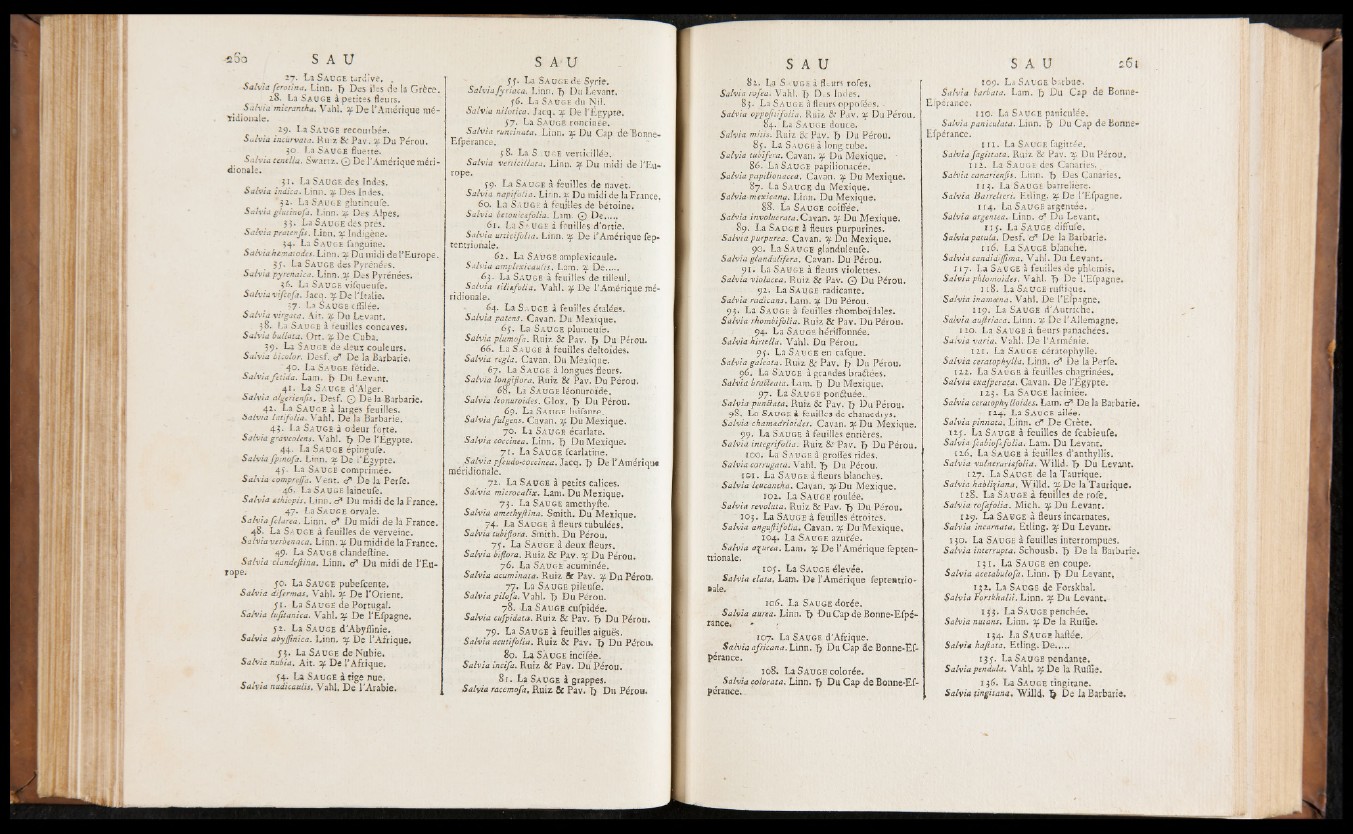 260 SAU SAU
27. La SAUGE tardive.
Salvia serotina. Linn. ♄ Des îles de la Grèce.
28. La SAUGE à petites fleurs.
Salvia micrantha. Vahl. ♃ De l'Amérique mé-
ridionale.
29. La SAUGE recourbée.
Salvia incurvata. Ruiz & Pav. ♃ Du Pérou.
30. La SAUGE fluette.
Salvia tenella. Swartz. ☉ De l'Amérique méri-
dionale.
31. La SAUGE des Indes.
Salvia indica. Linn. ♃ Des Indes.
32. La SAUGE glutineuse.
Salvia glutinosa. Linn. ♃ Des Alpes.
33. La SAUGE des prés.
Salvia pratensis. Linn. ♃ Indigène.
34. La SAUGE sanguine.
Salvia hematodes. Linn. ♃ Du midi de l'Europe.
35. La SAUGE des Pyrénées.
Salvia pyrenaica. Linn. ♃ Des Pyrénées.
36. La SAUGE visqueuse.
Salvia viscosa. Jacq. ♃ De l'Italie.
37. La SAUGE effilée.
Salvia virgata. Ait. ♃ Du Levant.
38. La SAUGE à feuilles concaves.
Salvia bullata. Ort. ♃ De Cuba.
39. La SAUGE de deux couleurs.
Salvia bicolor. Desf. ♂ De la Barbarie.
40. La SAUGE fétide.
Salvia fetida. Lam. ♄ Du Levant.
41. La SAUGE d'Alger.
Salvia algeriensis. Desf. ☉ De la Barbarie.
42. La SAUGE à larges feuilles.
Salvia latifolia. Vahl. De la Barbarie.
43. La SAUGE à odeur forte.
Salvia graveolens. Vahl. ♄ De l'Egypte.
44. La SAUGE épineuse.
Salvia spinosa. Linn. ♃ De l'Egypte.
45. La SAUGE comprimée.
Salvia compressa. Vent. ♂ De la Perse.
46. La SAUGE laineuse.
Salvia ethiopis. Linn. ♂ Du midi de la France.
47. La SAUGE orvale.
Salvia sclarea. Linn. ♂ Du midi de la France.
48. La SAUGE à feuilles de verveine.
Salvia verbenaca. Linn. ♃ Du midi de la France.
49. La SAUGE clandestine.
Salvia clandestina. Linn. ♂ Du midi de l'Eu-
rope.
50. La SAUGE pubescente.
Salvia difermas. Vahl. ♃ De l'Orient.
51. La SAUGE de Portugal.
Salvia lusitanica. Vahl. ♃ De l'Espagne.
52. La SAUGE d'Abyssinie.
Salvia abyssinica. Linn. ♃ De l'Afrique.
53. La SAUGE de Nubie.
Salvia nubia. Ait. ♃ De l'Afrique.
54. La SAUGE à tige nue.
Salvia nudicaulis. Vahl. De l'Arabie.
55. La SAUGE de Syrie.
Salvia syriaca. Linn. ♄ Du Levant.
56. La SAUGE du Nil.
Salvia nilotica. Jacq. ♃ De l'Egypte.
57. La SAUGE roncinée.
Salvia runcinata. Linn. ♃ Du Cap de Bonne-
Espérance.
58. La SAUGE verticillée.
Salvia verticillata. Linn. ♃ Du midi de l'Eu-
rope.
59. La SAUGE à feuilles de navet.
Salvia napifolia. Linn. ♃ Du midi de la France.
60. La SAUGE à feuilles de bétoine.
Salvia betonicefolia. Lam. ☉ De.....
61. La SAUGE à feuilles d'ortie.
Salvia urticifolia. Linn. ♃ De l'Amérique sep-
tentrionale.
62. La SAUGE amplexicaule.
Salvia amplexicaulis. Lam. ♃ De.....
63. La SAUGE à feuilles de tilleul.
Salvia tiliæfolia. Vahl. ♃ De l'Amérique mé-
ridionale.
64. La SAUGE à feuilles étalées.
Salvia patens. Cavan. Du Mexique.
65. La SAUGE plumeuse.
Salvia plumosa. Ruiz & Pav. ♄ Du Pérou.
66. La SAUGE à feuilles deltoïdes.
Salvia regla. Cavan. Du Mexique.
67. La SAUGE à longues fleurs.
Salvia longiflora. Ruiz & Pav. Du Pérou.
68. La SAUGE léonuroïde.
Salvia leonuroides. Glox. ♄ Du Pérou.
69. La SAUGE luisante.
Salvia fulgens. Cavan. ♃ Du Mexique.
70. La SAUGE écarlate.
Salvia coccinea. Linn. ♄ Du Mexique.
71. La SAUGE scarlatine.
Salvia pseudo-coccinea. Jacq. ♄ De l'Amérique
méridionale.
72. La SAUGE à petits calices.
Salvia microcalix. Lam. Du Mexique.
73. La SAUGE amethyste.
Salvia amethystina. Smith. Du Mexique.
74. La SAUGE à fleurs tubulées.
Salvia tubiflora. Smith. Du Pérou.
75. La SAUGE à deux fleurs.
Salvia biflora. Ruiz & Pav. ♃ Du Pérou.
76. La SAUGE acuminée.
Salvia acuminata. Ruiz & Pav. ♃ Du Pérou.
77. La SAUGE pileuse.
Salvia pilosa. Vahl. ♄ Du Pérou.
78. La SAUGE cuspidée.
Salvia cuspidata. Ruiz & Pav. ♄ Du Pérou.
79. La SAUGE à feuilles aiguës.
Salvia acutifolia. Ruiz & Pav. ♄ Du Pérou.
80. La SAUGE incisée.
Salvia incisa. Ruiz & Pav. Du Pérou.
81. La SAUGE à grappes.
Salvia racemosa. Ruiz & Pav. ♄ Du Pérou.
SAU SAU 261
82. La SAUGE à fleurs roses.
Salvia rosea. Vahl. ♄ Des Indes.
83. La SAUGE à fleurs opposées.
Salvia oppositifolia. Ruiz & Pav. ♃ Du Pérou.
84. La SAUGE douce.
Salvia mitis. Ruiz & Pav. ♄ Du Pérou.
85. La SAUGE à long tube.
Salvia tubifera. Cavan. ♃ Du Mexique.
86. La SAUGE papilionacée.
Salvia papilionacea. Cavan. ♃ Du Mexique.
87. La SAUGE du Mexique.
Salvia mexicana. Linn. Du Mexique.
88. La SAUGE coiffée.
Salvia involucrata. Cavan. ♃ Du Mexique.
89. La SAUGE à fleurs purpurines.
Salvia purpurea. Cavan. ♃ Du Mexique.
90. La SAUGE glanduleuse.
Salvia glandulifera. Cavan. Du Pérou.
91. La SAUGE à fleurs violettes.
Salvia violacea. Ruiz & Pav. ☉ Du Pérou.
92. La SAUGE radicante.
Salvia radicans. Lam. ♃ Du Pérou.
93. La SAUGE à feuilles rhomboïdales.
Salvia rhombifolia. Ruiz & Pav. Du Pérou.
94. La SAUGE hérissonnée.
Salvia hirtella. Vahl. Du Pérou.
95. La SAUGE en casque.
Salvia galeata. Ruiz & Pav. ♄ Du Pérou.
96. La SAUGE à grandes bractées.
Salvia bracteata. Lam. ♄ Du Mexique.
97. La SAUGE ponctuée.
Salvia punctata. Ruiz & Pav. ♄ Du Pérou.
98. La SAUGE à feuilles de chamedrys.
Salvia chamædrioides. Cavan. ♃ Du Mexique.
99. La SAUGE à feuilles entières.
Salvia integrifolia. Ruiz & Pav. ♄ Du Pérou.
100. La SAUGE à grosses rides.
Salvia corrugata. Vahl. ♄ Du Pérou.
101. La SAUGE à fleurs blanches.
Salvia leucantha. Cavan. ♃ Du Mexique.
102. La SAUGE roulée.
Salvia revoluta. Ruiz & Pav. ♄ Du Pérou.
103. La SAUGE à feuilles étroites.
Salvia angustifolia. Cavan. ♃ Du Mexique.
104. La SAUGE azurée.
Salvia azurea. Lam. ♃ De l'Amérique septen-
trionale.
105. La SAUGE élevée.
Salvia elata. Lam. De l'Amérique septentrio-
nale.
106. La SAUGE dorée.
Salvia aurea. Linn. ♄ Du Cap de Bonne-Espé-
rance.
107. La SAUGE d'Afrique.
Salvia africana. Linn. ♄ Du Cap de Bonne-Es-
pérance.
108. La SAUGE colorée.
Salvia colorata. Linn. ♄ Du Cap de Bonne-Es-
pérance.
109. La SAUGE barbue.
Salvia barbata. Lam. ♄ Du Cap de Bonne-
Espérance.
110. La SAUGE paniculée.
Salvia paniculata. Linn. ♄ Du Cap de Bonne-
Espérance.
111. La SAUGE sagittée.
Salvia sagittata. Ruiz & Pav. ♃ Du Pérou.
112. La SAUGE des Canaries.
Salvia canariensis. Linn. ♄ Des Canaries.
113. La SAUGE barrelière.
Salvia Barrelieri. Etling. ♃ De l'Espagne.
114. La SAUGE argentée.
Salvia argentea. Linn. ♂ Du Levant.
115. La SAUGE diffuse.
Salvia patula. Desf. ♂ De la Barbarie.
116. La SAUGE blanche.
Salvia candidissima. Vahl. Du Levant.
117. La SAUGE à feuilles de phlomis.
Salvia phlomoides. Vahl. ♄ De l'Espagne.
118. La SAUGE rustique.
Salvia inamœna. Vahl. De l'Espagne.
119. La SAUGE d'Autriche.
Salvia austriaca. Linn. ♃ De l'Allemagne.
120. La SAUGE à fleurs panachées.
Salvia varia. Vahl. De l'Arménie.
121. La SAUGE cératophylle.
Salvia ceratophylla. Linn. ♂ De la Perse.
122. La SAUGE à feuilles chagrinées.
Salvia exasperata. Cavan. De l'Egypte.
123. La SAUGE laciniée.
Salvia ceratophylloides. Lam. ♂ De la Barbarie.
124. La SAUGE ailée.
Salvia pinnata. Linn. ♂ De Crète.
125. La SAUGE à feuilles de scabieuse.
Salvia scabiosifolia. Lam. Du Levant.
126. La SAUGE à feuilles d'anthyllis.
Salvia vulnerariæfolia. Willd. ♄ Du Levant.
127. La SAUGE de la Taurique.
Salvia habliziana. Willd. ♃ De la Taurique.
128. La SAUGE à feuilles de rose.
Salvia rosæfolia. Mich. ♃ Du Levant.
129. La SAUGE à fleurs incarnates.
Salvia incarnata. Etling. ♃ Du Levant.
130. La SAUGE à feuilles interrompues.
Salvia interrupta. Schousb. ♄ De la Barbarie.
131. La SAUGE en coupe.
Salvia acetabulosa. Linn. ♄ Du Levant.
132. La SAUGE de Forskhal.
Salvia Forskhalii. Linn. ♃ Du Levant.
133. La SAUGE penchée.
Salvia nutans. Linn. ♃ De la Russie.
134. La SAUGE hastée.
Salvia hastata. Etling. De.....
135. La SAUGE pendante.
Salvia pendula. Vahl. ♃ De la Russie.
136. La SAUGE tingitane.
Salvia tingitana. Willd. ♄ De la Barbarie.